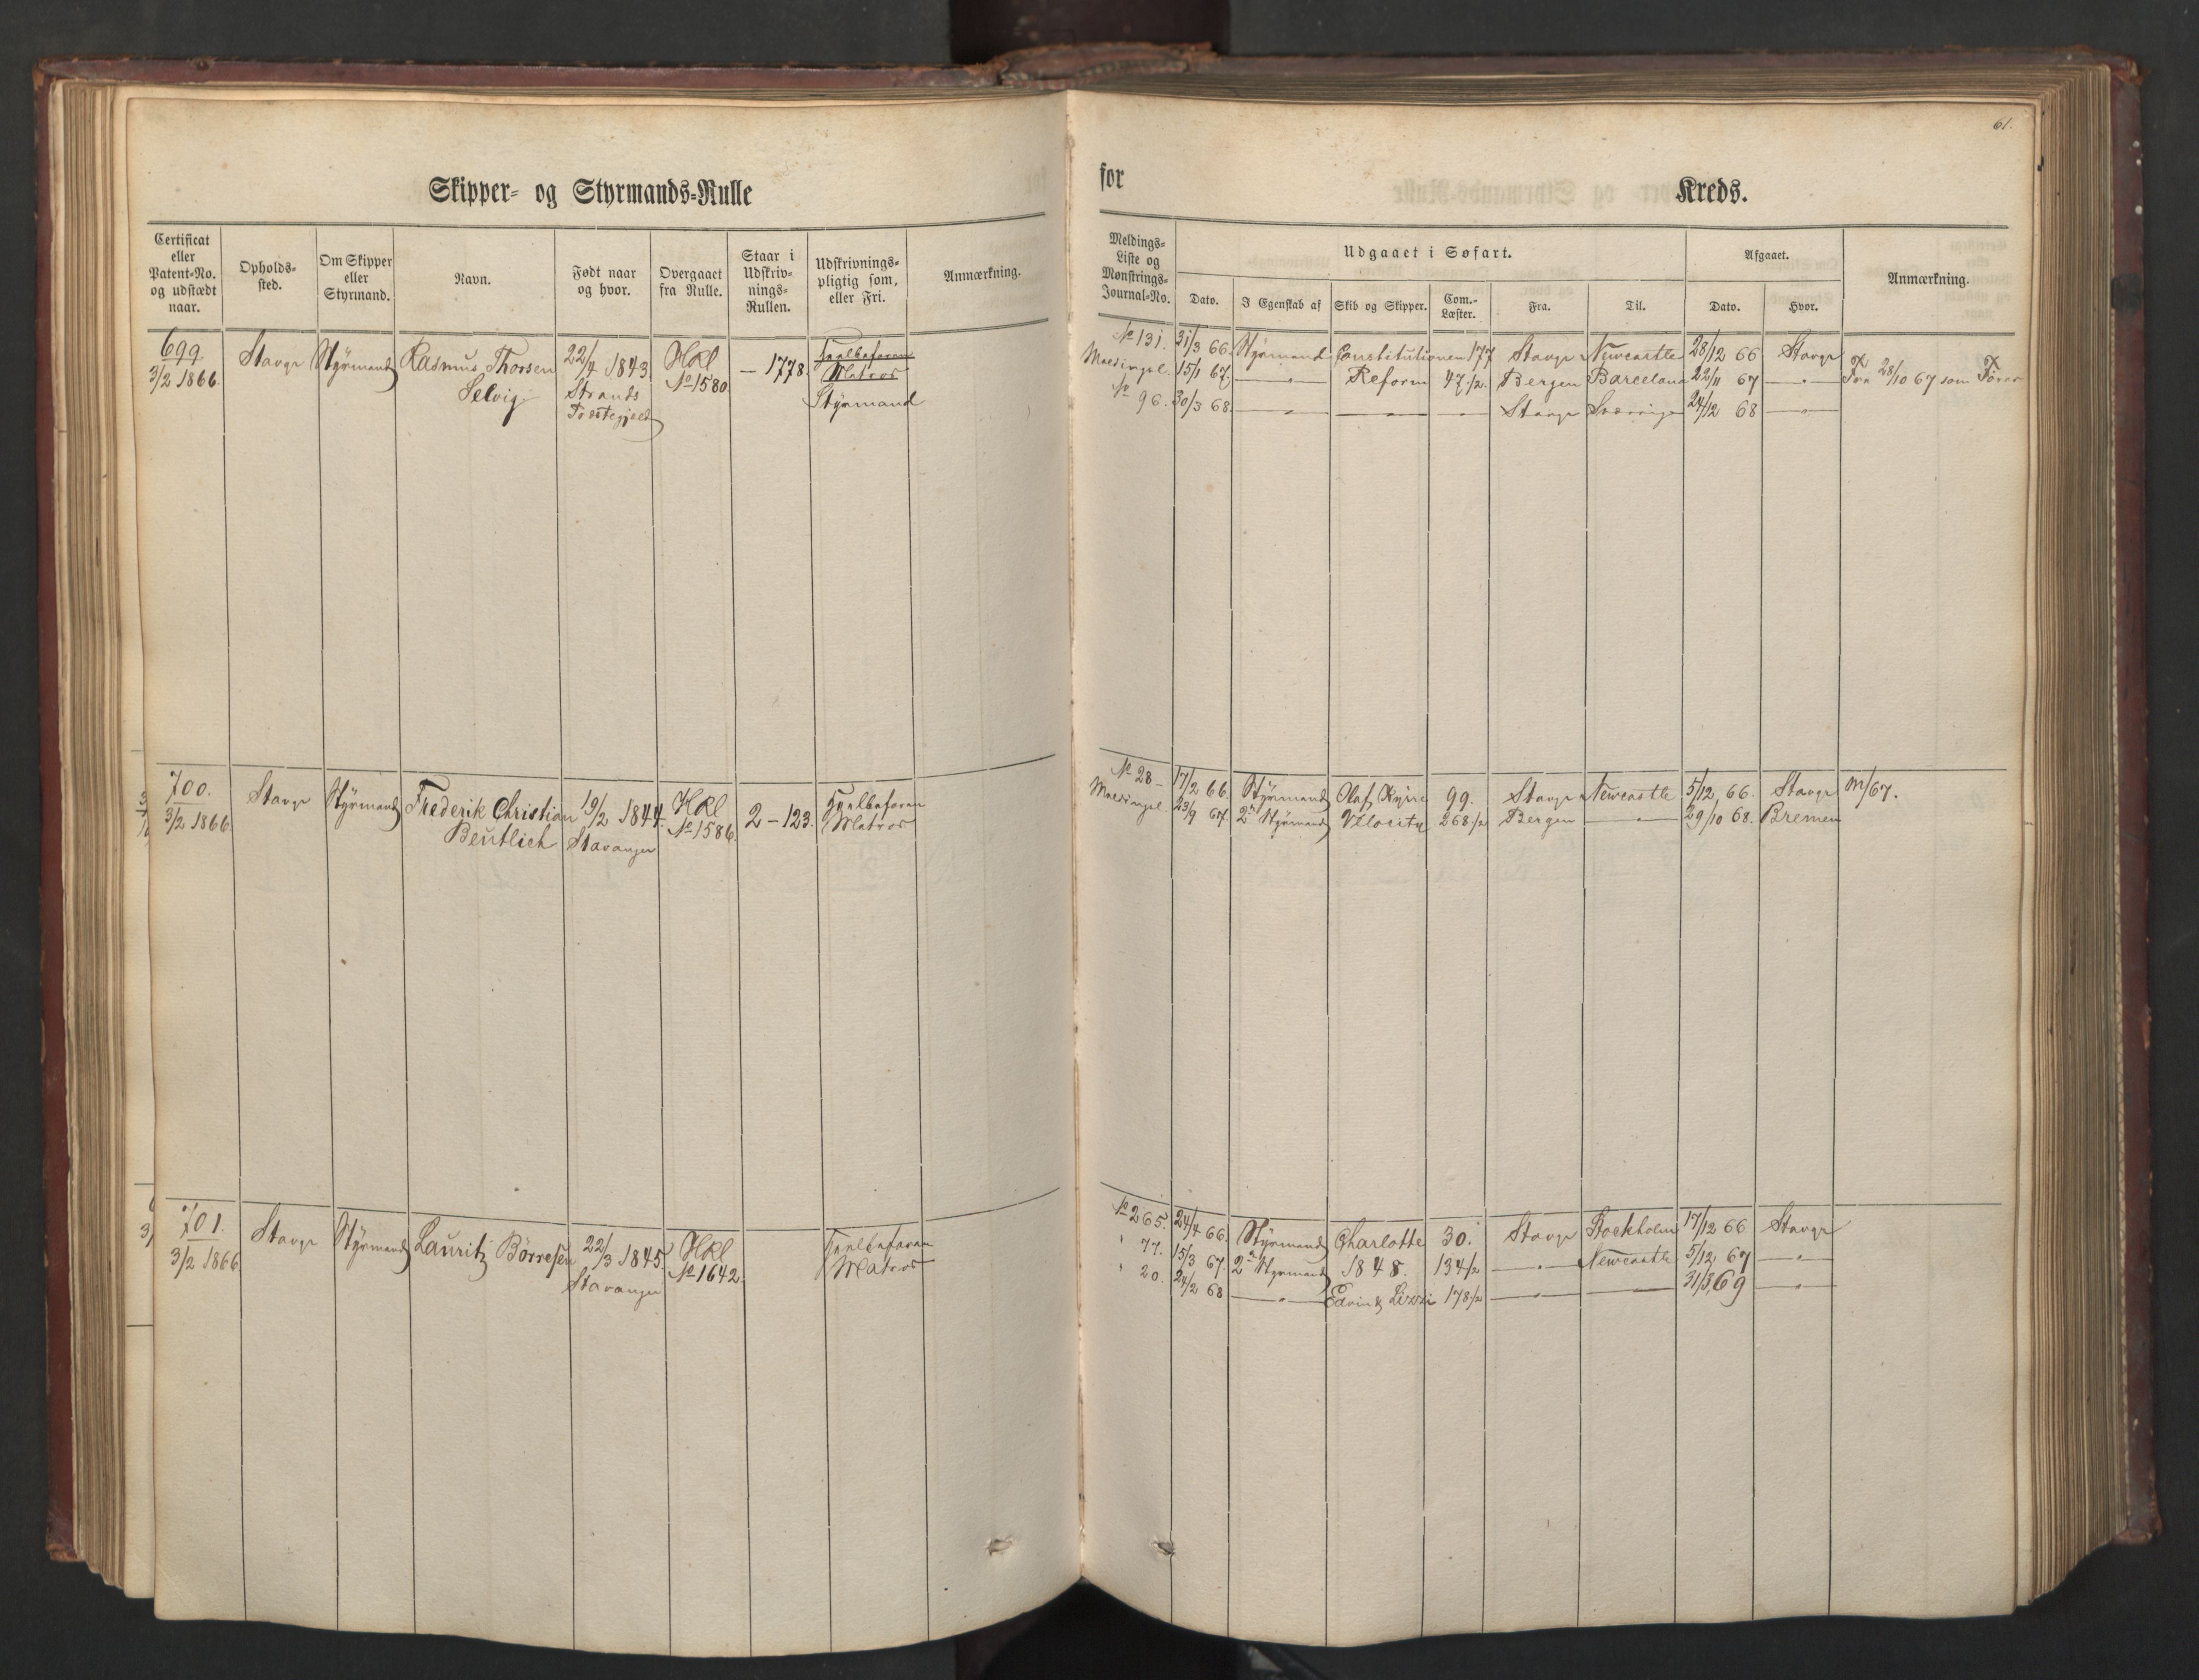 61.
Skipper- og Styrmands-Rulle
for Kreds.
Certificat eller Patent-No. og udstædt naar.
Opholds-sted.
Om Skipper eller Styrmand.
Navn.
Født naar og hvor.
Overgaaet fra Rulle.
Staar i Udskriv-nings-Rullen.
Udskrivnings-pligtig som, eller Fri.
Anmærkning.
Meldings-Liste og Mønstrings-Journal-No.
Udgaaet i Søfart.
Dato.
I Egenskab af
Skib og Skipper.
Com.-Læster.
Fra.
Til.
Afgaaet.
Dato.
Hvor.
Anmærkning.
699 Stavgr Styrmand Rasmus Thorsen 22/4 1843 HRl — 1778.
3/2 1866. Selvig Strands No 1580 Matros
Præstegjeld Styrmand
No 131. 31/3 66. Styrmand Constitutionen 177 Stavgr Newcastle 28/12 66 Stavgr
15/1 67. —"— Reform 47 1/2. Bergen Barcelona 22/11 67 —"— Fra 28/10 67 som Fører
No 96. 30/3 68. —"— —"— —"— Stavgr 24/12 68 —"—
700. Stavgr Styrmand Frederik Christian 19/2 1844. HRl 2 – 123.
3/2 1866. Beutlich Stavanger No 1586. Matros
No 28 – 17/2 66. Styrmand Olaf Kyrre 99. Stavgr Newcastle 5/12 66. Stavgr m/67.
23/9 67. 2n Styrmand Velocity 268 1/2 Bergen —"— 29/10 68. Bremen
701. Stavgr Styrmand Lauritz Børresen 22/3 1845. HRl
3/2 1866 Stavanger No 1642. Matros
No 265. 24/4 66. Styrmand Charlotte 30. Stavgr Stockholm 17/12 66 Stavgr
" 77. 15/3 67. 2n Styrmand 1848. 134 1/2 —"— Newcastle 5/12 67 —"—
" 20. 24/2 68 —"— Edvin & Lizzi 178 1/2 —"— —"— 31/3 69 —"—